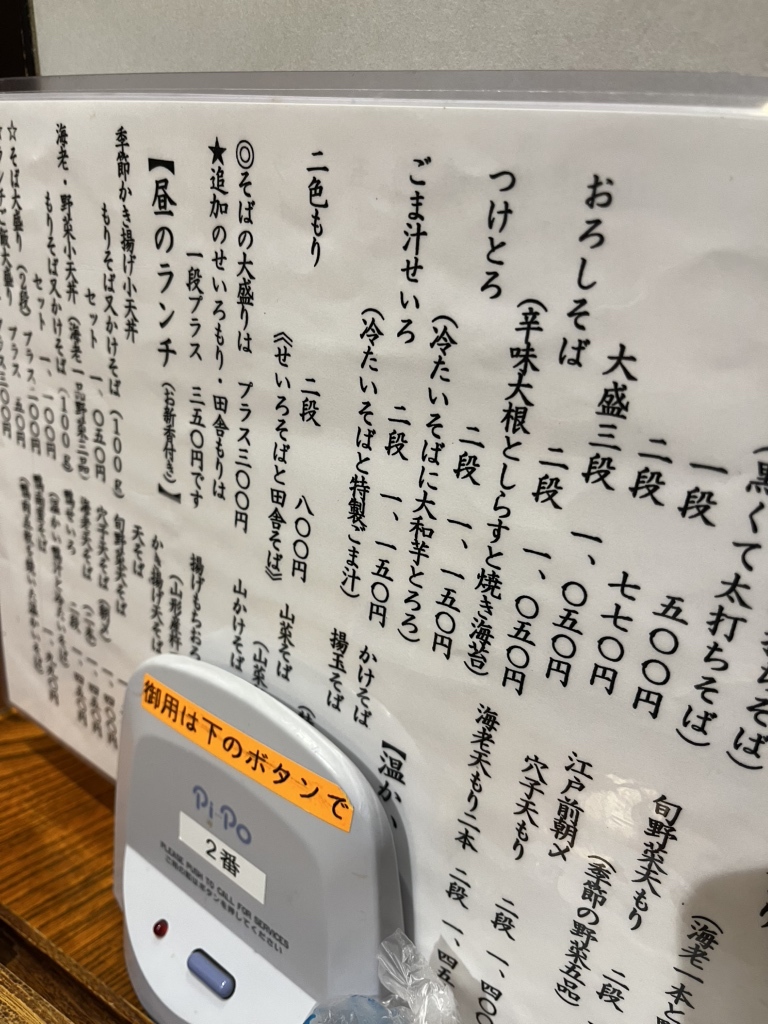 (黒くて太打ちそば)
一段 五〇〇円
二段 七七〇円
大盛三段 一、〇五〇円
おろしそば 二段 一、〇五〇円
(辛味大根としらすと焼き海苔)
つけとろ 二段 一、一五〇円
(冷たいそばに大和芋とろろ)
ごま汁せいろ 二段 一、一五〇円
(冷たいそばと特製ごま汁)
二色もり 二段 八〇〇円
《せいろそばと田舎そば》
◎そばの大盛りは プラス三〇〇円
★追加のせいろもり・田舎もりは
一段プラス 三五〇円です
【昼のランチ(お新香付き)】
季節かき揚げ小天丼
もりそば又かけそば(100g)
セット 一、〇五〇円
海老・野菜小天丼(海老一品野菜三品)
もりそば又かけそば(100g)
セット 一、一〇〇円
☆そば大盛り(2段)プラス二〇〇円
(海老一本と
旬野菜天もり 二段
(季節の野菜五品)
江戸前朝〆
穴子天もり 二段 一、四〇〇
海老天もり二本 二段 一、四五
【温か
かけそば
揚玉そば
山菜そば
(山菜
山かけそば
揚げもちおろ
(山形産
かき揚げ天そば
天そば
旬野菜天そば
穴子天そば
海老天そば(二本)
鴨せいろ 二段
御用は下のボタンで
Pi-Po
2番
PLEASE PUSH TO CALL FOR SERVICES
ご用の節はボタンを押してください